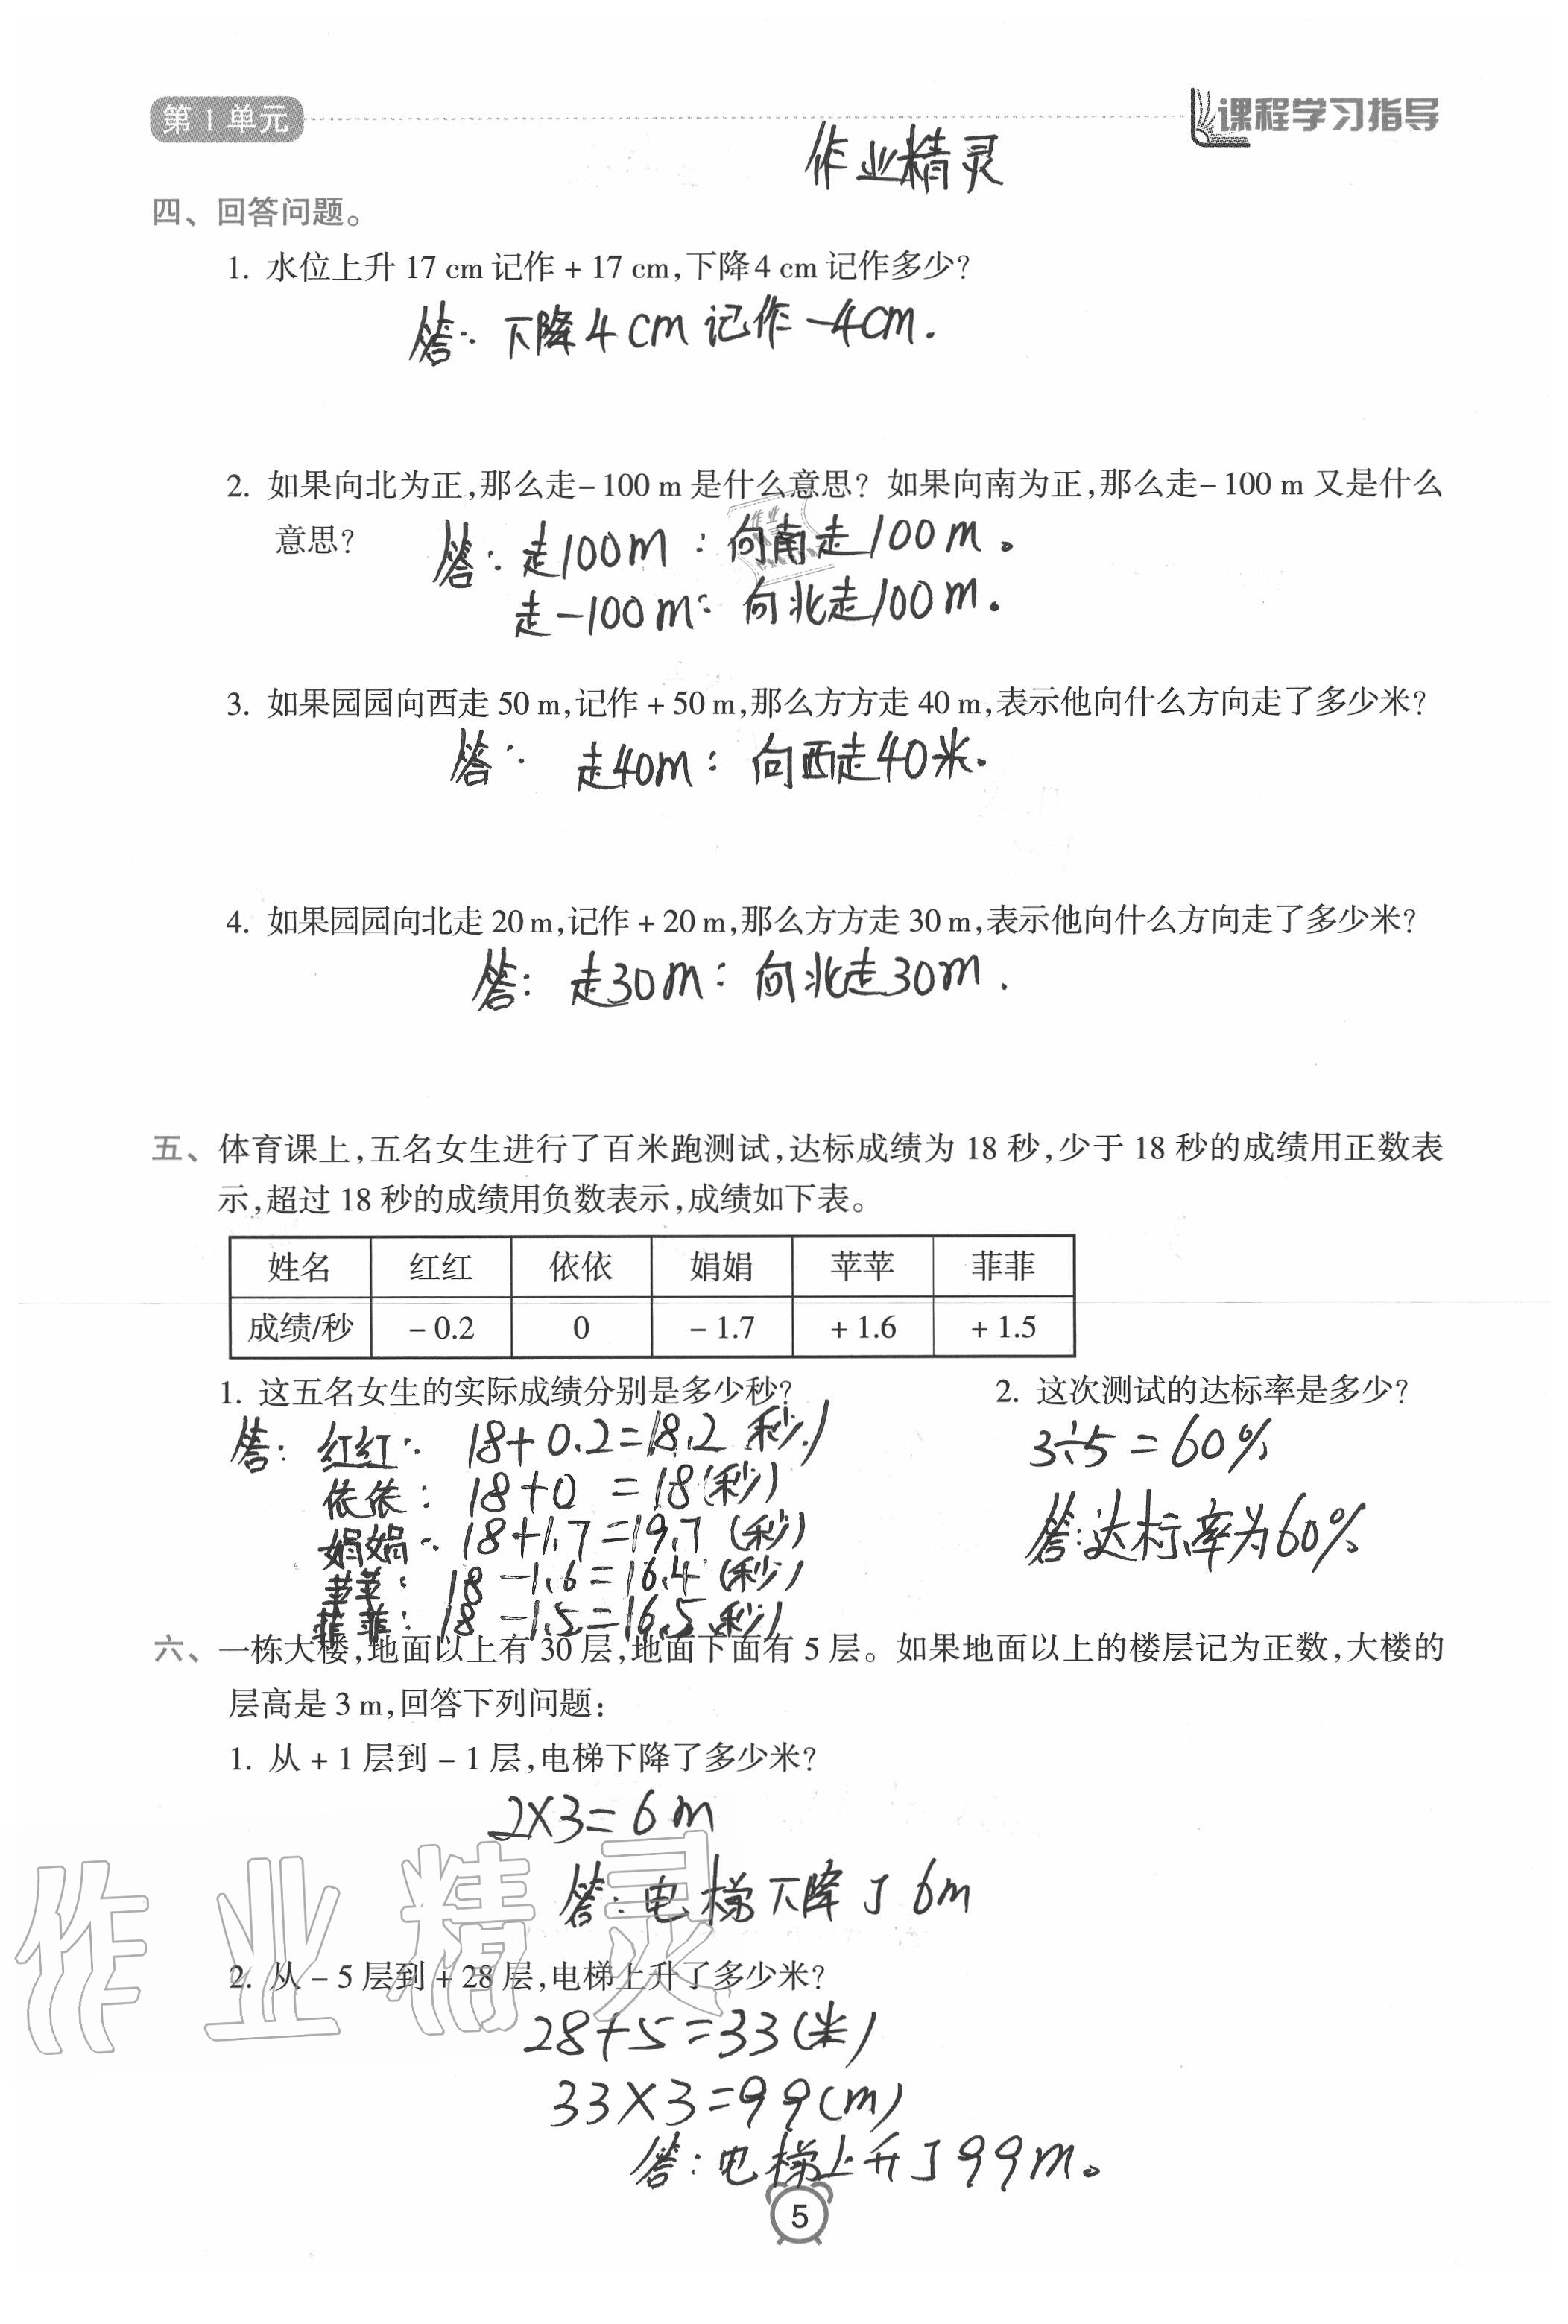 第1单元
课程学习指导
作业精灵
四、回答问题。
1. 水位上升 17 cm 记作 + 17 cm,下降4 cm 记作多少?
答: 下降4cm记作-4cm.
2. 如果向北为正,那么走- 100 m 是什么意思? 如果向南为正,那么走- 100 m 又是什么
意思?
答: 走100m: 向南走100m。
走-100m: 向北走100m.
3. 如果园园向西走 50 m,记作 + 50 m,那么方方走 40 m,表示他向什么方向走了多少米?
答: 走40m: 向西走40米.
4. 如果园园向北走 20 m,记作 + 20 m,那么方方走 30 m,表示他向什么方向走了多少米?
答: 走30m: 向北走30m.
五、体育课上,五名女生进行了百米跑测试,达标成绩为 18 秒,少于 18 秒的成绩用正数表
示,超过 18 秒的成绩用负数表示,成绩如下表。
姓名 红红 依依 娟娟 苹苹 菲菲
成绩/秒 - 0.2 0 - 1.7 + 1.6 + 1.5
1. 这五名女生的实际成绩分别是多少秒?
答: 红红: 18+0.2=18.2 秒)
依依: 18+0 =18(秒)
娟娟: 18+1.7=19.7 (秒)
苹苹: 18-1.6=16.4 (秒)
菲菲: 18-1.5=16.5(秒)
2. 这次测试的达标率是多少?
3÷5=60%
答:达标率为60%
六、一栋大楼,地面以上有 30 层,地面下面有 5 层。如果地面以上的楼层记为正数,大楼的
层高是 3 m,回答下列问题:
1. 从 + 1 层到 - 1 层,电梯下降了多少米?
2×3=6m
答:电梯下降了6m
2. 从 - 5 层到 + 28 层,电梯上升了多少米?
28+5=33(米)
33×3=99(m)
答:电梯上升了99m。
作业精灵
5